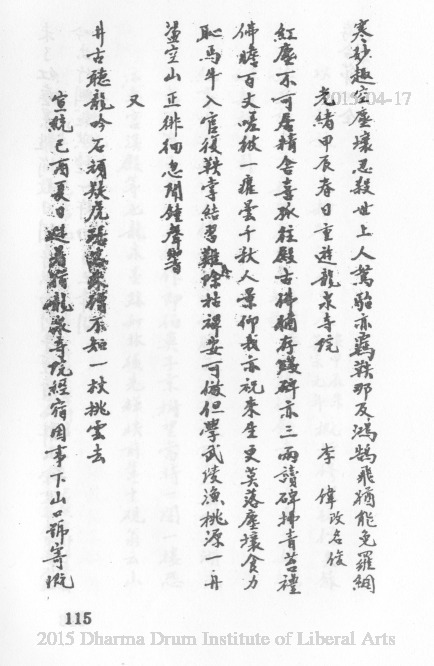 寒砂趣空塵壤忍殺世上人駑駘亦羈軼那及鴻鵠飛猶能免羅網
光緒甲辰春日重遊龍泉寺院 李偉改名俊
紅塵不可居精舍喜孤往殿古佛猶存殘碑亦三兩讀碑掃青苔禮
佛瞻百丈嗟彼一瞿曇千秋人景仰我亦祝來生更莫落塵壤食力
恥馬牛入官復鞅掌結習難除枯禪安可倣但學武陵漁桃源一舟
盪空山正徘徊忽聞鐘聲響
又
井古聽龍吟石頑疑虎踞 不知一枝挑雲去
宣統己酉夏日遊 宿龍泉寺院經宿因事下山口號寄慨
115
2015-04-17
2015 Dharma Drum Institute of Liberal Arts